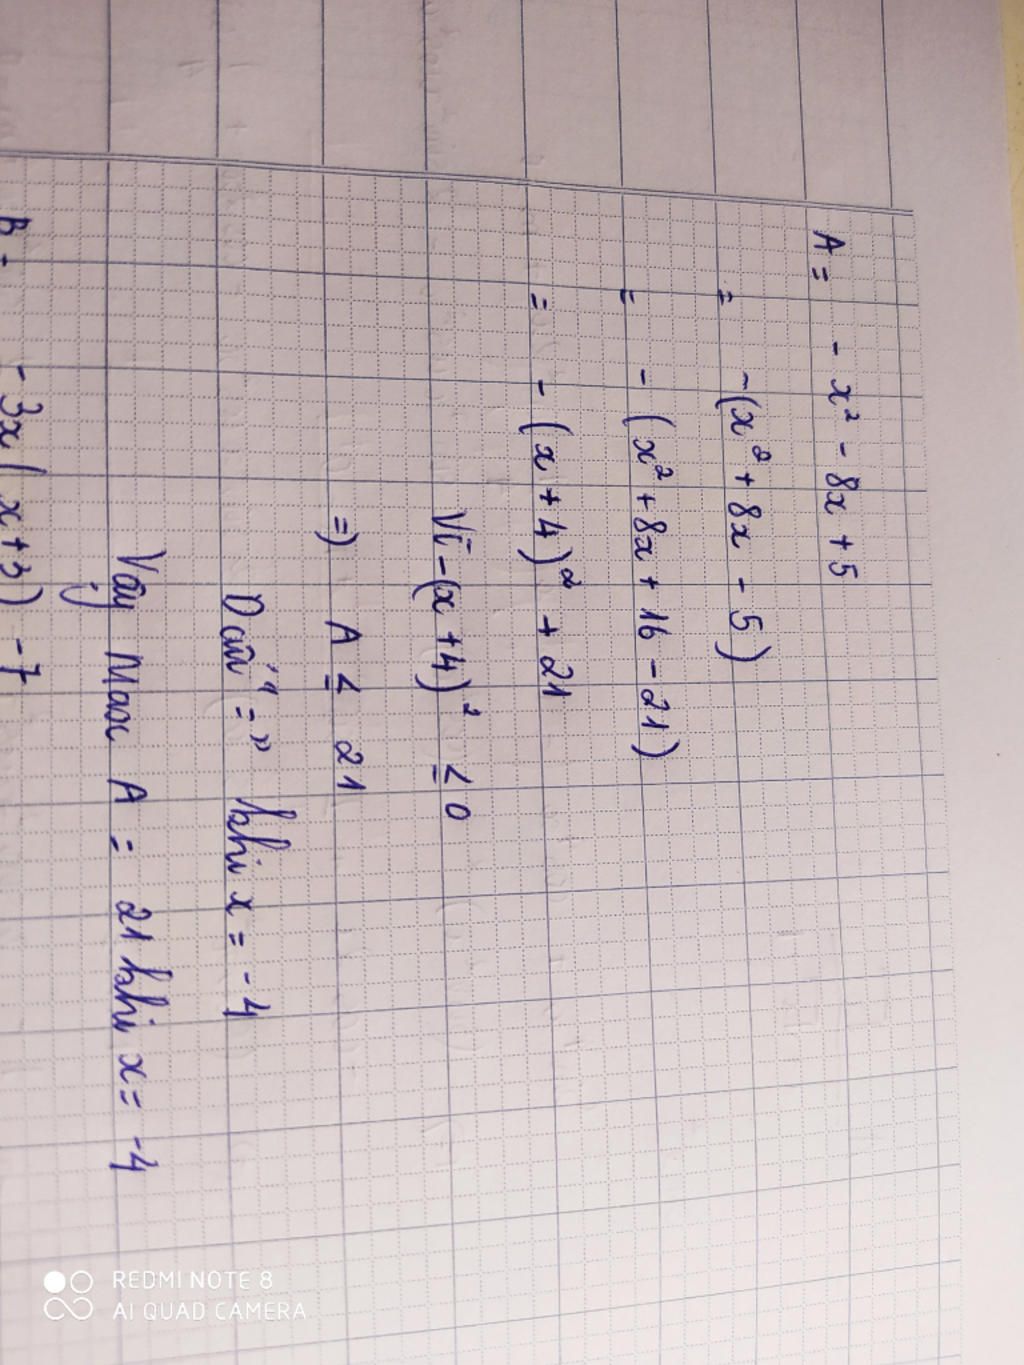 A = - x² - 8x + 5
= -(x² + 8x - 5)
= - (x² + 8x + 16 - 21)
= - (x + 4)² + 21
Vì -(x + 4)² ≤ 0
=) A ≤ 21
Dấu "=" khi x = -4
Vậy Max A = 21 khi x = -4
B = - 3x ( x + 3) - 7
REDMI NOTE 8
AI QUAD CAMERA